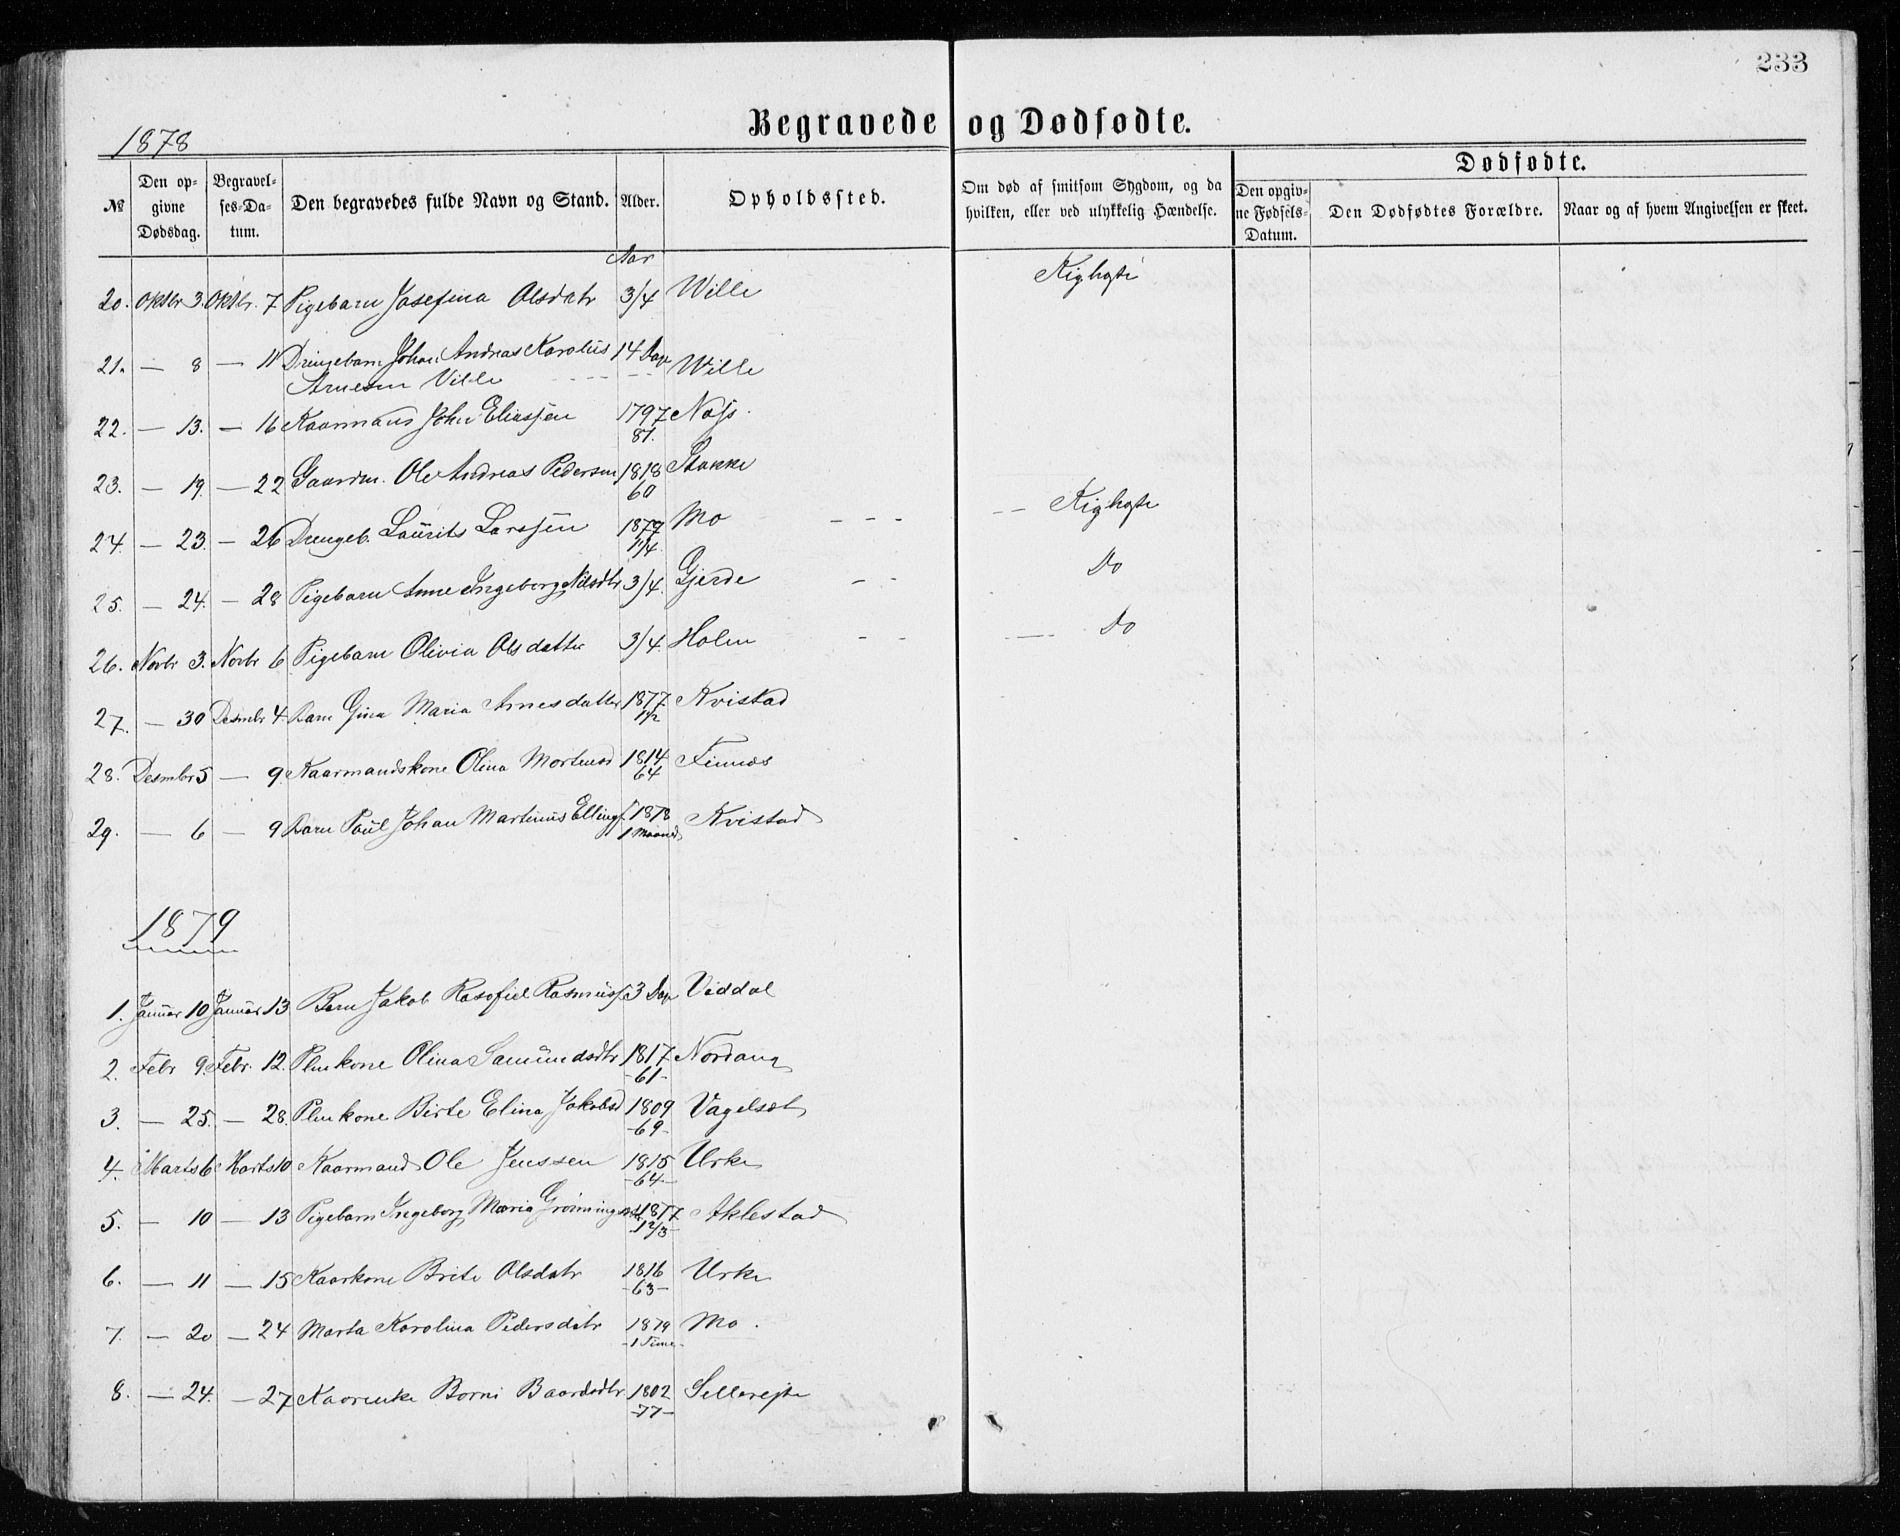 233
Begravede og Dødfødte.
1878
Dødfødte.
№ Den opgivne Dødsdag. Begravelses-Datum. Den begravedes fulde Navn og Stand. Alder. Opholdssted. Om død af smitsom Sygdom, og da hvilken, eller ved ulykkelig Hændelse. Den opgivne Fødsels-Datum. Den Dødfødtes Forældre. Naar og af hvem Angivelsen er skeet.
Aar
20. Oktbr 3. Oktbr. 7 Pigebarn Josefina Olsdatr 3/4 Wille Kighoste
21. — 8 — 11 Drengebarn Johan Andreas Karolus 14 Dage Wille
Arnesen Ville
22. — 13. — 16 Kaarmand John Eliassen 1797 Næs.
81.
23. — 19. — 22 Gaardm. Ole Andreas Pedersen 1818 Stokke
60
24. — 23. — 26 Drengeb. Laurits Larssen 1877 Mo - - - -- Kighoste
1 1/4
25. — 24. — 28 Pigebarn Anne Ingeborg Nilsdtr 3/4. Gjerde - - Do
26. Novbr 3. Novbr 6 Pigebarn Olivia Olsdatter 3/4. Holen - - Do
27. — 30 Desmbr 4. Barn Gina Maria Arnesdatter 1877 Kvistad
1 1/2
28. Desmbr 5 — 9. Kaarmandskone Olina Mortensd 1814 Finnæs
64
29. — 6 — 9 Barn Paul Johan Martinus Ellings. 1878 Kvistad
1 Maaned
1879
1. Januar 10 Januar 13 Barn Jakob Rasofiel Rasmuss. 3 Dage Viddal
2. Febr 9. Febr. 12. Plmkone Olina Samundsdtr 1817 Nordang
-61-
3. — 25. — 28. Plmkone Birte Elina Jakobsd 1809 Vagelsæt
-69-
4. Marts 6 Marts 10 Kaarmand Ole Jenssen 1815 Urke
-64-
5. — 10 — 13 Pigebarn Ingeborg Maria 1877 Aklestad
1 2/3
6. — 11 — 15 Kaarkone Brite Olsdatr 1816 Urke
-63-
7. — 20 — 24 Marta Karolina Pedersdatr 1879 Mo.
-1 Time-
8. — 24. — 27 Kaarenke Borni Baardsdtr 1802
-77-